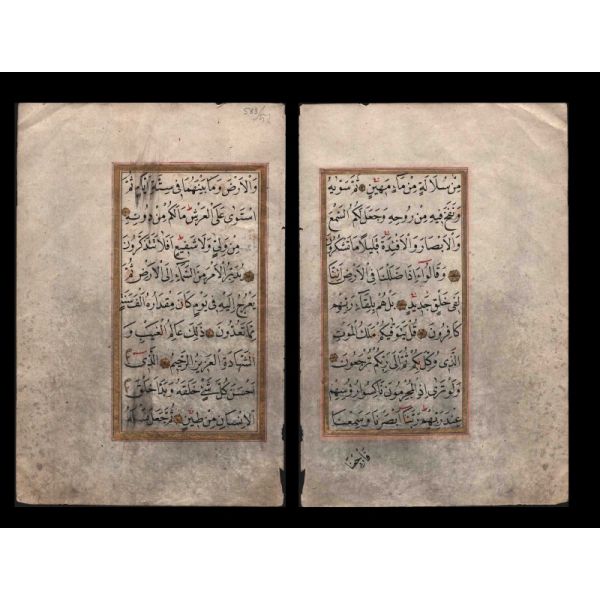 وَالْاَرْضَ وَمَا بَيْنَهُمَا فِى سِتَّةِ اَيَّامٍ ثُمَّ
اسْتَوٰى عَلَى الْعَرْشِ مَالَكُمْ مِنْ دُونِهِ
مِنْ وَلِىٍّ وَلَا شَفِيعٍ اَفَلَا تَتَذَكَّرُونَ
يُدَبِّرُ الْاَمْرَ مِنَ السَّمَاءِ اِلَى الْاَرْضِ ثُمَّ
يَعْرُجُ اِلَيْهِ فِى يَوْمٍ كَانَ مِقْدَارُهُ اَلْفَ سَنَةٍ
مِمَّا تَعُدُّونَ ذٰلِكَ عَالِمُ الْغَيْبِ وَ
الشَّهَادَةِ الْعَزِيزُ الرَّحِيمُ الَّذِى
اَحْسَنَ كُلَّ شَىْءٍ خَلَقَهُ وَبَدَاَ خَلْقَ
الْاِنْسَانِ مِنْ طِينٍ ثُمَّ جَعَلَ نَسْلَهُ
مِنْ سُلَالَةٍ مِنْ مَاءٍ مَهِينٍ ثُمَّ سَوّٰيهُ
وَنَفَخَ فِيهِ مِنْ رُوحِهِ وَجَعَلَ لَكُمُ السَّمْعَ
وَالْاَبْصَارَ وَالْاَفْئِدَةَ قَلِيلًا مَا تَشْكُرُونَ
وَقَالُوا ءَاِذَا ضَلَلْنَا فِى الْاَرْضِ ءَاِنَّا
لَفِى خَلْقٍ جَدِيدٍ بَلْ هُمْ بِلِقَاءِ رَبِّهِمْ
كَافِرُونَ قُلْ يَتَوَفّٰيكُمْ مَلَكُ الْمَوْتِ
الَّذِى وُكِّلَ بِكُمْ ثُمَّ اِلٰى رَبِّكُمْ تُرْجَعُونَ
وَلَوْ تَرٰى اِذِ الْمُجْرِمُونَ نَاكِسُوا رُؤُسِهِمْ
عِنْدَ رَبِّهِمْ رَبَّنَا اَبْصَرْنَا وَسَمِعْنَا
فارجعنا